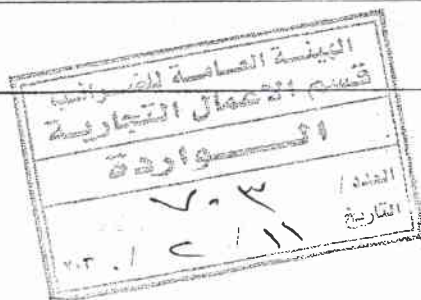 الهيئة العامة للضرائب
قسم الاعمال التجارية
الـــواردة
العدد / ٧٠٣
التاريخ ١١ / ٢ /